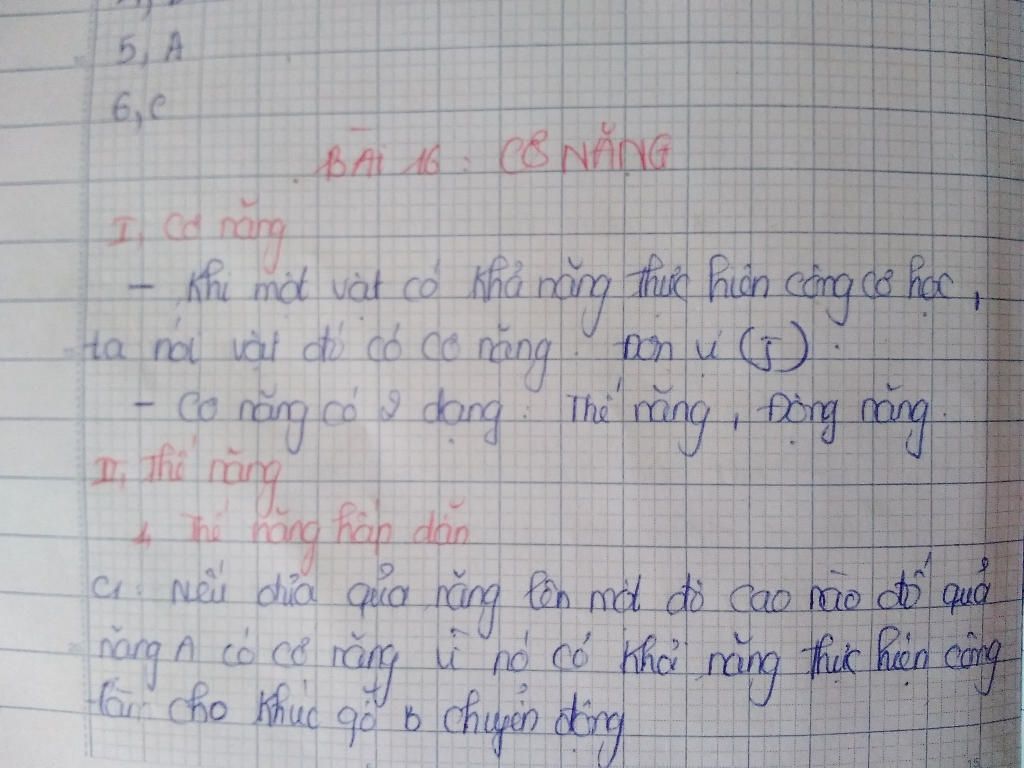 5, A
6, C
BÀI 16 : CƠ NĂNG
I, Cơ năng
- Khi một vật có khả năng thực hiện công cơ học,
ta nói vật đó có cơ năng. Đơn vị (J).
- Cơ năng có 2 dạng: Thế năng, Động năng.
II, Thế năng
1, Thế năng hấp dẫn
C1: Nếu đưa quả nặng lên một độ cao nào đó quả
nặng A có cơ năng vì nó có khả năng thực hiện công
làm cho khúc gỗ B chuyển động